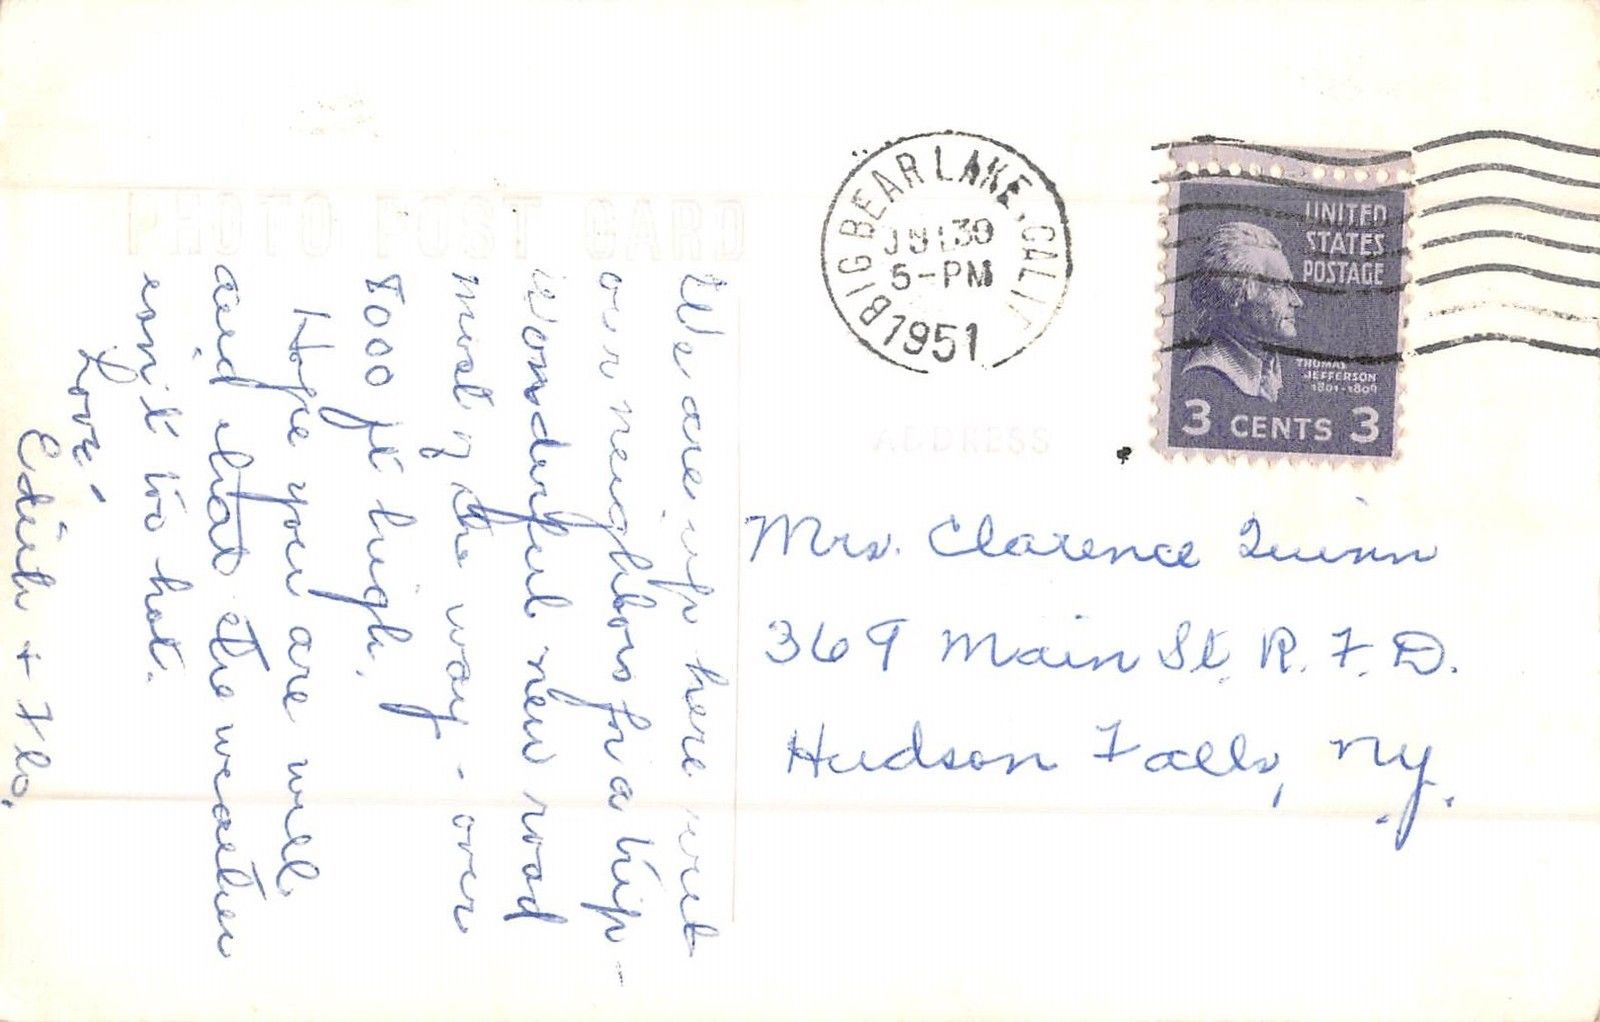 PHOTO POST CARD
We are up here with
our neighbors for a trip -
Wonderful new road
most of the way - over
8000 ft high.
Hope you are well
and that the weather
isn't too hot.
Love -
Edith + Flo.
BIG BEAR LAKE, CALIF
JUL 30
5-PM
1951
UNITED
STATES
POSTAGE
THOMAS
JEFFERSON
1801-1809
3 CENTS 3
ADDRESS
Mrs. Clarence Quinn
369 Main St. R.F.D.
Hudson Falls, Ny.